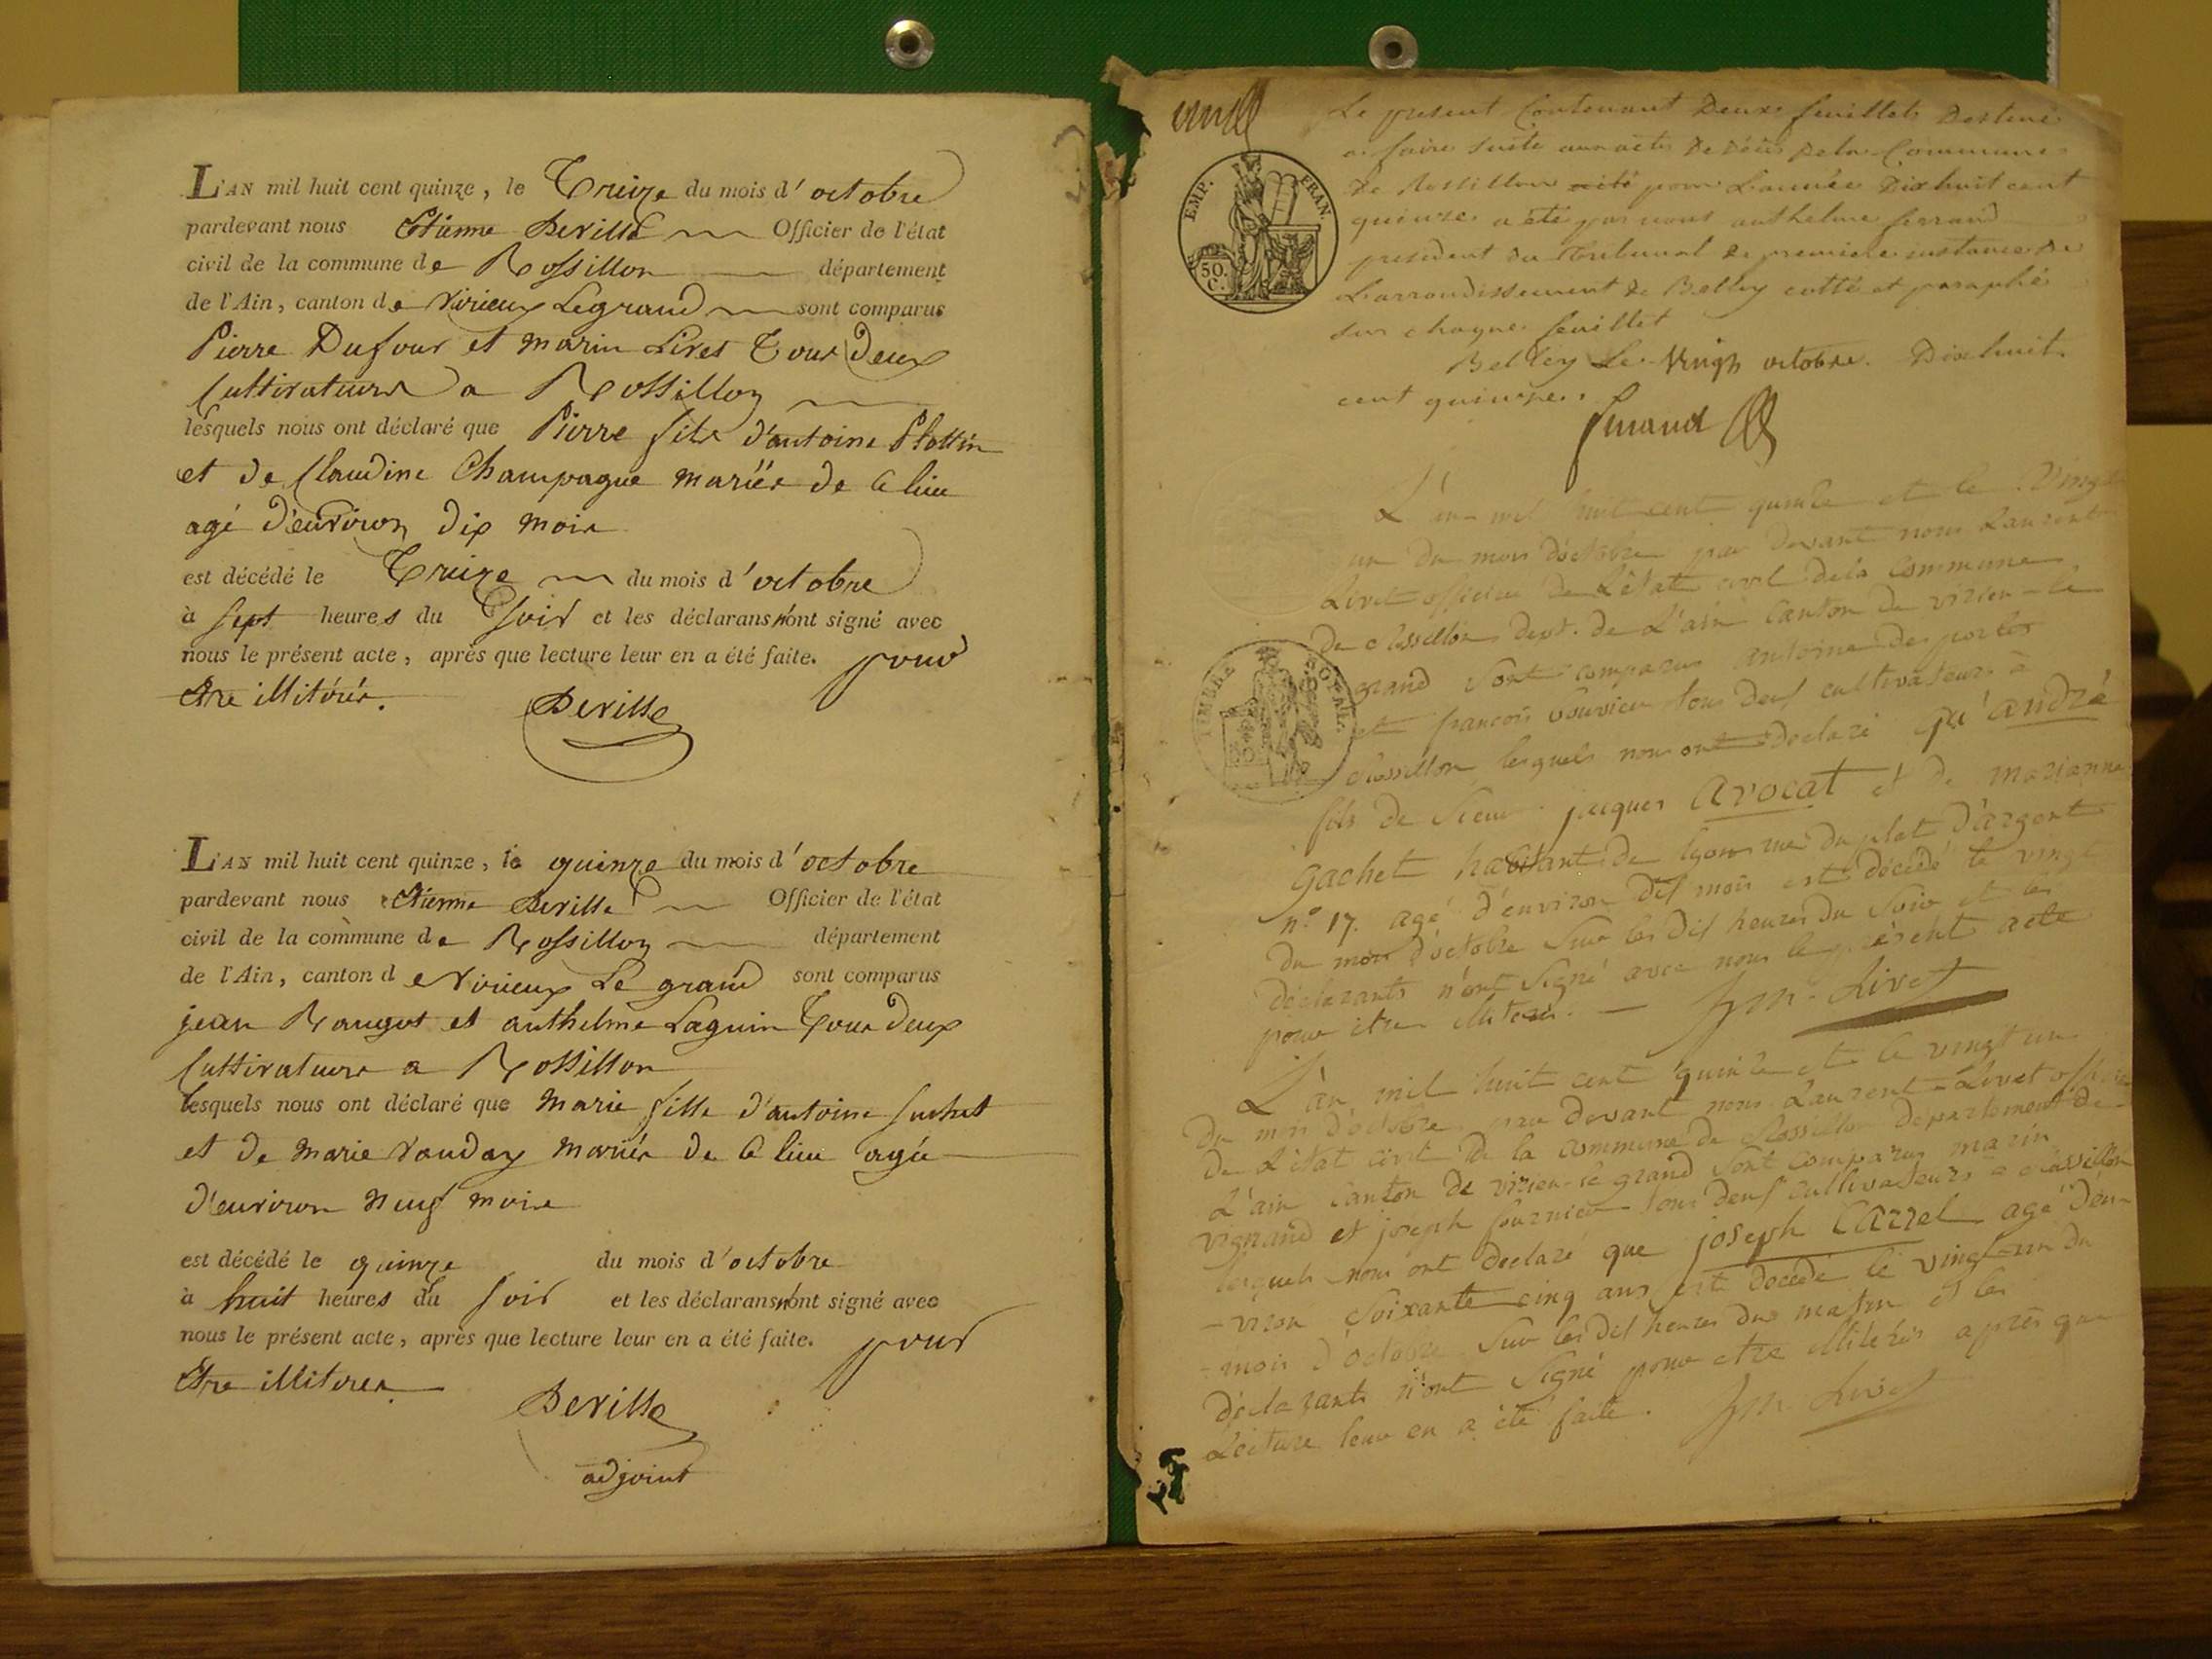 L'AN mil huit cent quinze, le Treize du mois d'octobre
pardevant nous Etienne Deville Officier de l'état
civil de la commune de Rossillon département
de l'Ain, canton de Virieux Legrand sont comparus
Pierre Dufour et marin Livet Tous Deux
Cultivateurs a Rossillon
lesquels nous ont déclaré que Pierre fils d'antoine
et de Claudine Champagne mariés de ce lieu
agé d'environ dix mois
est décédé le Treize du mois d'octobre
à sept heures du soir et les déclarans n'ont signé avec
nous le présent acte, après que lecture leur en a été faite. pour
être illitérés.
Deville
L'AN mil huit cent quinze, le quinze du mois d'octobre
pardevant nous Etienne Deville Officier de l'état
civil de la commune de Rossillon département
de l'Ain, canton de Virieux Le grand sont comparus
jean Rangot et anthelme Laguin Tous Deux
Cultivateurs a Rossillon
lesquels nous ont déclaré que Marie fille d'antoine Suchet
et de marie mariés de ce lieu agée
d'environ neuf mois
est décédé le quinze du mois d'octobre
à huit heures du soir et les déclarans n'ont signé avec
nous le présent acte, après que lecture leur en a été faite. pour
Etre illiteres
Deville
adjoint
Le present Contenant Deux feuillets Destiné
a faire suite aux actes de décès De la Commune
de Rossillon pour L'année Dix huit cent
quinze a été par nous anthelme ferrand
president du Tribunal de premiere instance de
L'arrondissement de Belley cotté et paraphé
sur chaque feuillet
Belley Le Vingt octobre Dix huit
cent quinze.
ferrand
EMP. FRAN.
50. C.
L'an mil huit cent quinze et le Vingt
un du mois d'octobre par devant nous Laurent
Livet officier de L'état civil de la commune
de Rossillon dept. de L'ain Canton de virieu-le
grand sont comparus antoine desportes
et françois vouvier tous deux cultivateurs à
Rossillon lesquels nous ont declaré qu'andré
fils de sieur jacques Avocat et de marianne
TIMBRE ROYAL.
gachet habitant de lyon rue du plat D'argent
n° 17. agé d'environ dix mois est décédé le vingt
du mois d'octobre sur les dix heures du soir et les
déclarants n'ont signé avec nous le présent acte
pour etre illiteres. Livet
L'an mil huit cent quinze et le vingt un
du mois d'octobre par devant nous Laurent Livet officier
de L'état civil de la commune de Rossillon département de
L'ain Canton de virieu-le grand sont comparus marin
vignand et joseph fournier tous deux cultivateurs a Rossillon
lesquels nous ont declaré que joseph Carrel agé d'en-
-viron soixante cinq ans est décédé le vingt-un du
-mois d'octobre sur les dix heures du matin et les
déclarants n'ont signé pour etre illiterés après que
Lecture leur en a été faite. Livet